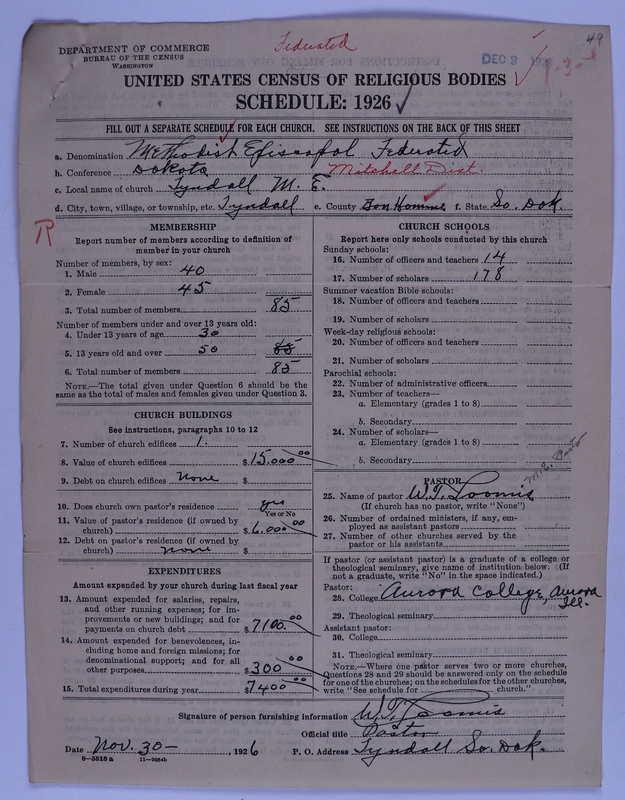 49
DEPARTMENT OF COMMERCE
BUREAU OF THE CENSUS
WASHINGTON
Federated
DEC 3
UNITED STATES CENSUS OF RELIGIOUS BODIES
SCHEDULE: 1926
FILL OUT A SEPARATE SCHEDULE FOR EACH CHURCH. SEE INSTRUCTIONS ON THE BACK OF THIS SHEET
a. Denomination Methodist Episcopal Federated
b. Conference Dakota Mitchell Dist.
c. Local name of church Tyndall M. E.
d. City, town, village, or township, etc. Tyndall e. County Bon Homme f. State So. Dak.
R
MEMBERSHIP
Report number of members according to definition of
member in your church
Number of members, by sex:
1. Male 40
2. Female 45
3. Total number of members 85
Number of members under and over 13 years old:
4. Under 13 years of age 30
5. 13 years old and over 50 85
6. Total number of members 85
NOTE.—The total given under Question 6 should be the
same as the total of males and females given under Question 3.
CHURCH BUILDINGS
See instructions, paragraphs 10 to 12
7. Number of church edifices 1.
8. Value of church edifices $15.000 00
9. Debt on church edifices None $
10. Does church own pastor's residence yes
Yes or No
11. Value of pastor's residence (if owned by
church) $6.000 00
12. Debt on pastor's residence (if owned by
church) none $
EXPENDITURES
Amount expended by your church during last fiscal year
13. Amount expended for salaries, repairs,
and other running expenses; for im-
provements or new buildings; and for
payments on church debt $7100. 00
14. Amount expended for benevolences, in-
cluding home and foreign missions; for
denominational support; and for all
other purposes $300 00
15. Total expenditures during year $7400 00
CHURCH SCHOOLS
Report here only schools conducted by this church
Sunday schools:
16. Number of officers and teachers 14
17. Number of scholars 178
Summer vacation Bible schools:
18. Number of officers and teachers
19. Number of scholars
Week-day religious schools:
20. Number of officers and teachers
21. Number of scholars
Parochial schools:
22. Number of administrative officers
23. Number of teachers—
a. Elementary (grades 1 to 8)
b. Secondary
24. Number of scholars—
a. Elementary (grades 1 to 8)
b. Secondary
PASTOR
25. Name of pastor W. T. Loomis
(If church has no pastor, write "None")
26. Number of ordained ministers, if any, em-
ployed as assistant pastors
27. Number of other churches served by the
pastor or his assistants
If pastor (or assistant pastor) is a graduate of a college or
theological seminary, give name of institution below. (If
not a graduate, write "No" in the space indicated.)
Pastor:
28. College Aurora College, Aurora
Ill.
29. Theological seminary
Assistant pastor:
30. College
31. Theological seminary
NOTE.—Where one pastor serves two or more churches,
Questions 28 and 29 should be answered only on the schedule
for one of the churches; on the schedules for the other churches,
write "See schedule for church."
Signature of person furnishing information W. T. Loomis
Official title Pastor
Date Nov. 30—, 1926 P. O. Address Tyndall So. Dak.
8—5518a 11—9054b